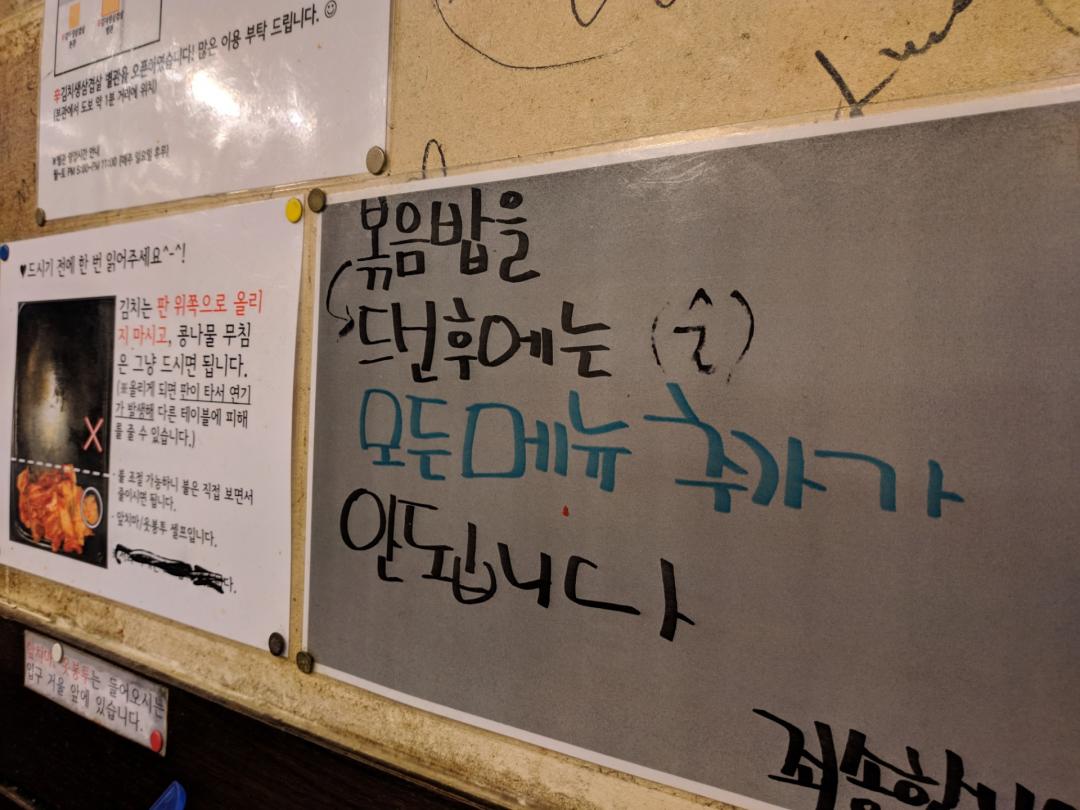 김치생삼겹살 별관을 오픈하였습니다! 많은 이용 부탁 드립니다.
(본관에서 도보 약 1분 거리에 위치)
※별관 영업시간 안내
월~토 PM 5:00~PM 11:00 (매주 일요일 휴무)
♥드시기 전에 한 번 읽어주세요^-^!
김치는 판 위쪽으로 올리
지 마시고, 콩나물 무침
은 그냥 드시면 됩니다.
(※올리게 되면 판이 타서 연기
가 발생해 다른 테이블에 피해
를 줄 수 있습니다.)
· 불 조절 가능하니 불은 직접 보면서
줄이시면 됩니다.
· 앞치마/옷봉투 셀프입니다.
앞치마, 옷봉투는 들어오시는
입구 거울 앞에 있습니다.
볶음밥을
드신후에는 (술)
모든메뉴 추가가
안됩니다